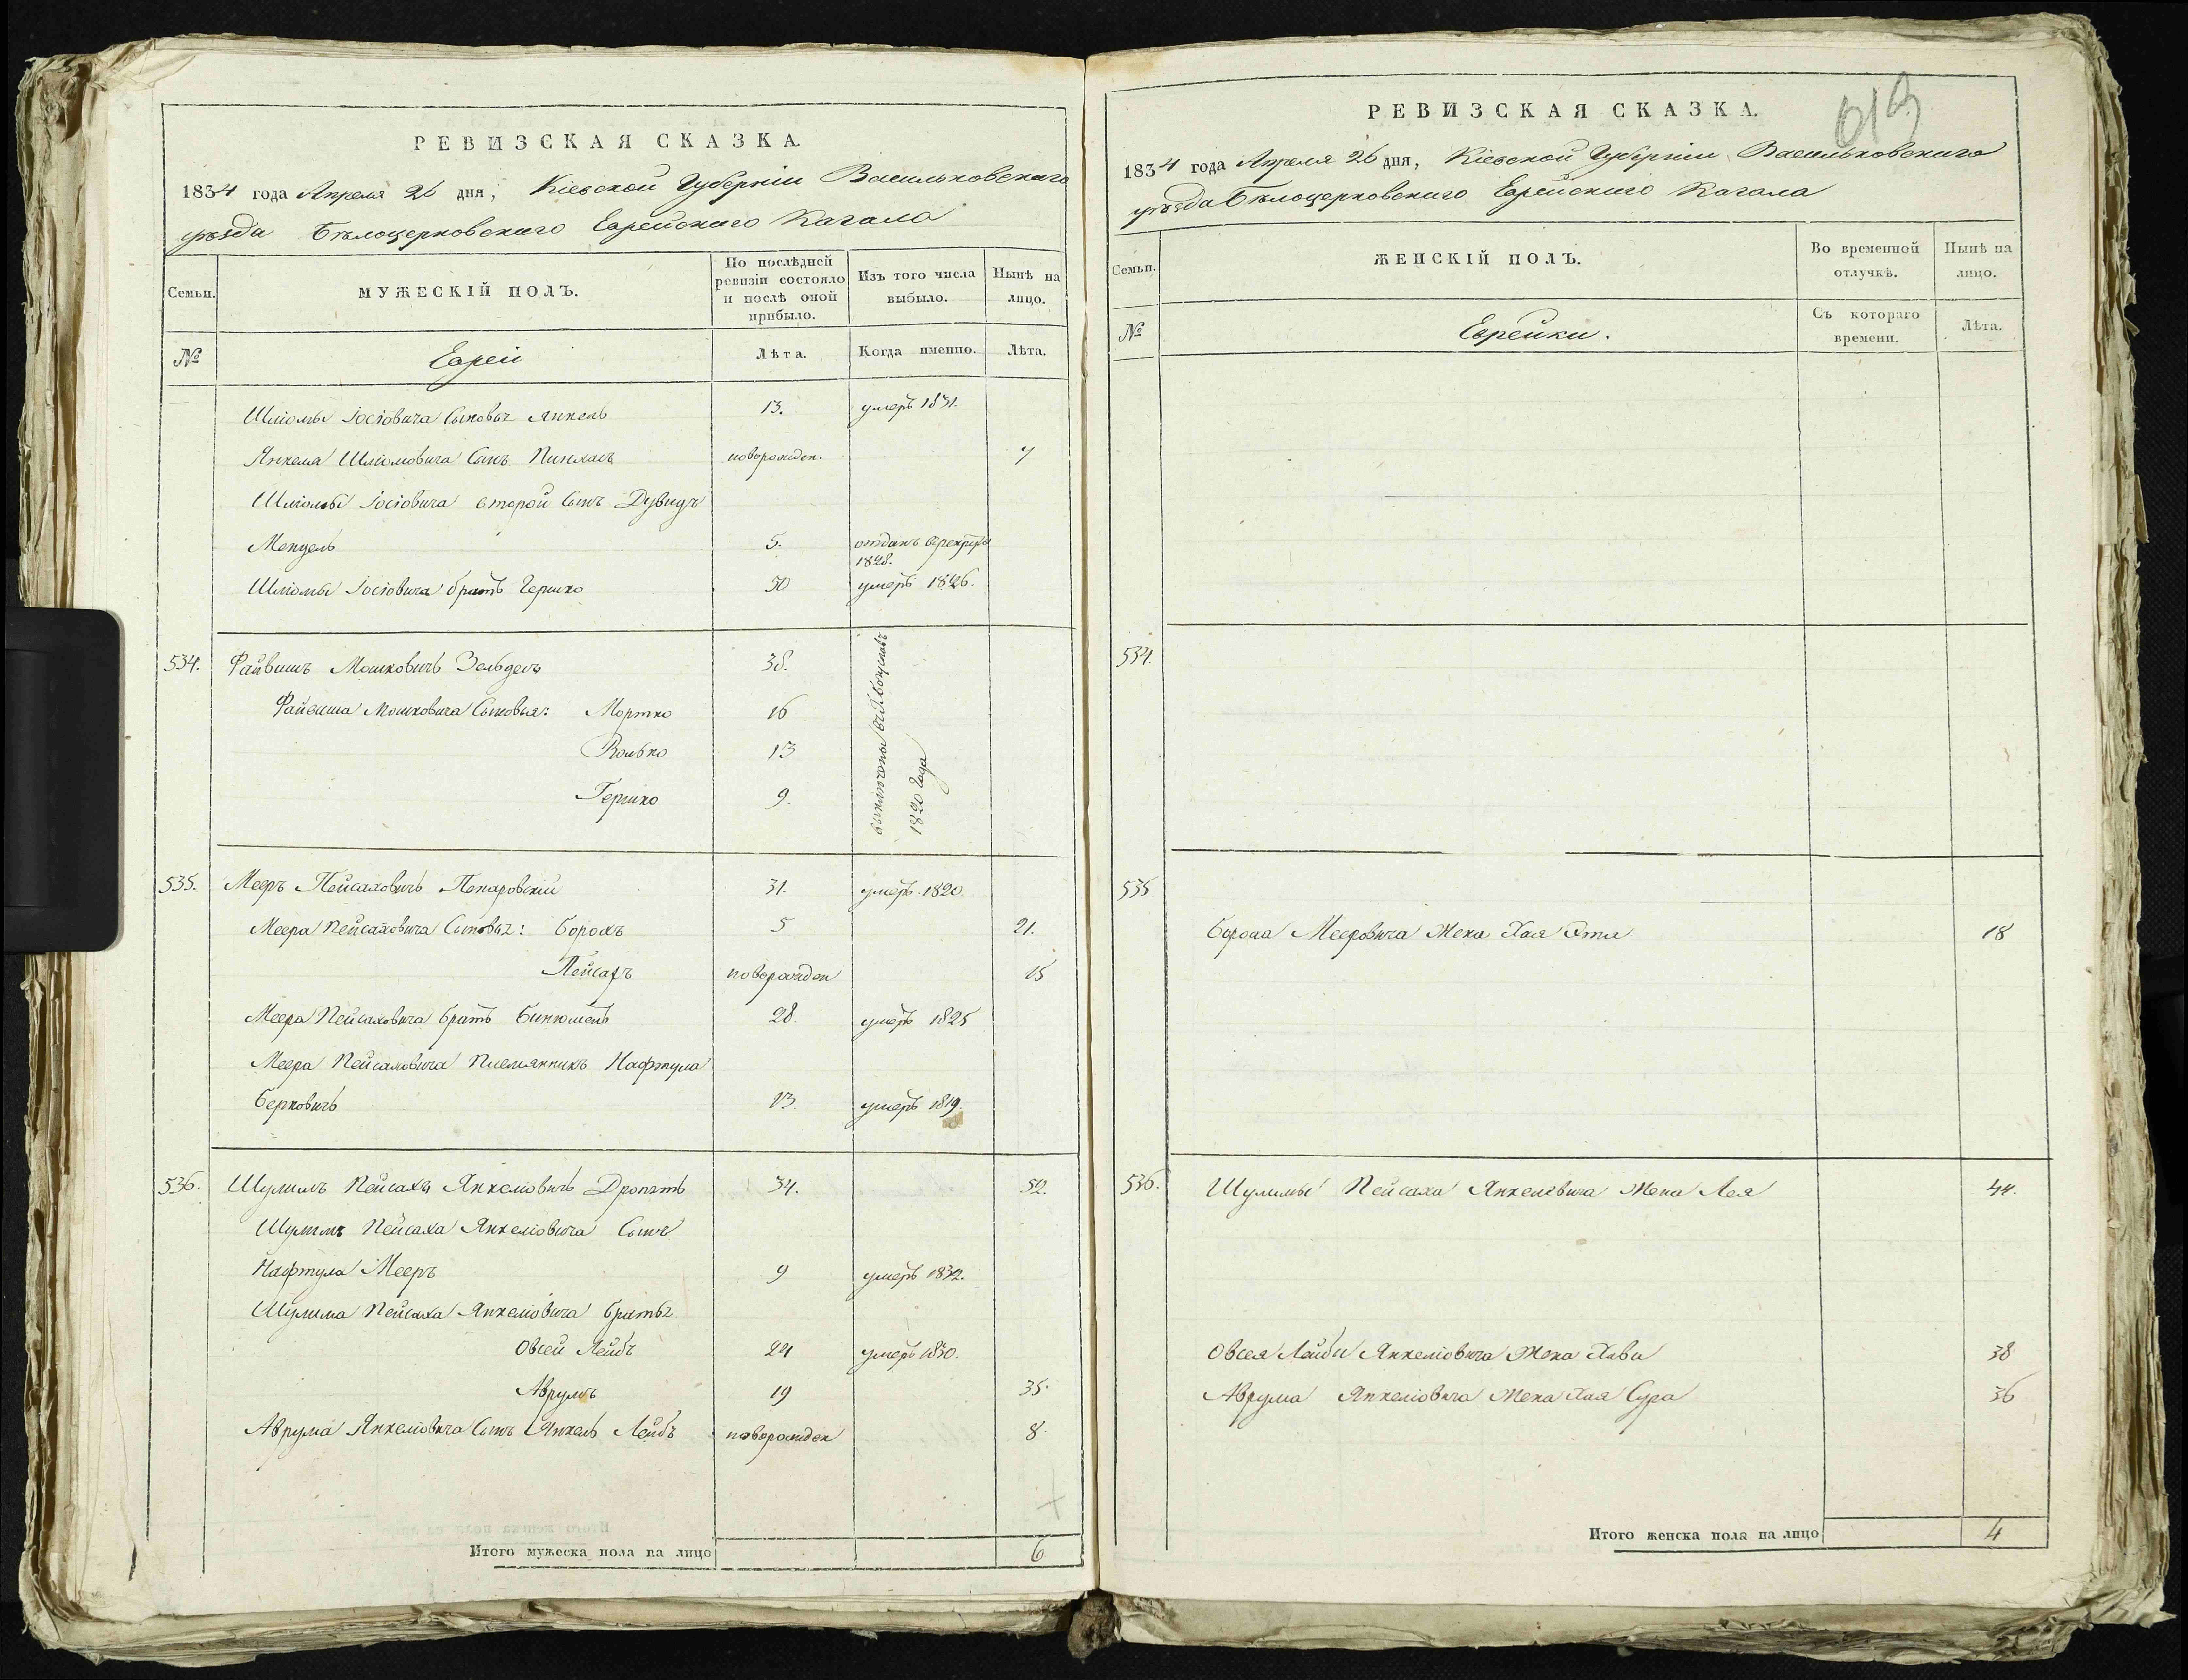 РЕВИЗСКАЯ СКАЗКА.
1834 года Апреля 26 дня, Кіевской Губерніи Васильковскаго
уѣзда Бѣлоцерковскаго Еврейскаго Кагала
Семьи.
МУЖЕСКІЙ ПОЛЪ.
По послѣдней ревизіи состояло и послѣ оной прибыло.
Изъ того числа выбыло.
Нынѣ на лицо.
№
Евреи
Лѣта.
Когда именно.
Лѣта.
Шліомы Іосіовича Сыновья Янкель 13. умеръ 1831.
Янкеля Шліомовича Сынъ Пинхасъ новорожден. 7
Шліомы Іосіовича второй Сынъ Дувидъ
Мендель 5. отданъ в рекруты
1828.
Шліомы Іосіовича братъ Гершко 50 умеръ 1826.
534. Файвишъ Мошковичъ Зельдецъ 38.
Файвиша Мошковича Сыновья: Мортко 16
Волько 13
Гершко 9.
1820 Года
535. Мееръ Пейсаховичъ Пекаровскій 31. умеръ 1820.
Меера Пейсаховича Сыновья: Борохъ 5 21.
Пейсахъ новорожден 15
Меера Пейсаховича братъ Бинюменъ 28. умеръ 1825
Меера Пейсаховича Племянникъ Нафтула
Берковичъ 13 умеръ 1819.
536. Шулимъ Пейсахъ Янкеліовичъ Дропятъ 34. 52.
Шулимъ Пейсаха Янкеліовича Сынъ
Нафтула Мееръ 9 умеръ 1832.
Шулима Пейсаха Янкеліовича братья
Овсей Лейбъ 24 умеръ 1830.
Аврумъ 19 35.
Аврума Янкеліовича Сынъ Янкель Лейбъ новорожден 8
Итого мужеска пола на лицо 6
РЕВИЗСКАЯ СКАЗКА.
619
1834 года Апреля 26 дня, Кіевской Губерніи Васильковскаго
уѣзда Бѣлоцерковскаго Еврейскаго Кагала
Семьи.
ЖЕНСКІЙ ПОЛЪ.
Во временной отлучкѣ.
Нынѣ на лицо.
№
Еврейки.
Съ котораго времени.
Лѣта.
534.
535
Бороха Мееровича Жена Хая Этя 18
536. Шулимы Пейсаха Янкелевича Жена Лея 44.
Овсея Лейбы Янкеліовича Жена Хава 38
Аврума Янкеліовича Жена Хая Сура 36
Итого женска пола на лицо 4